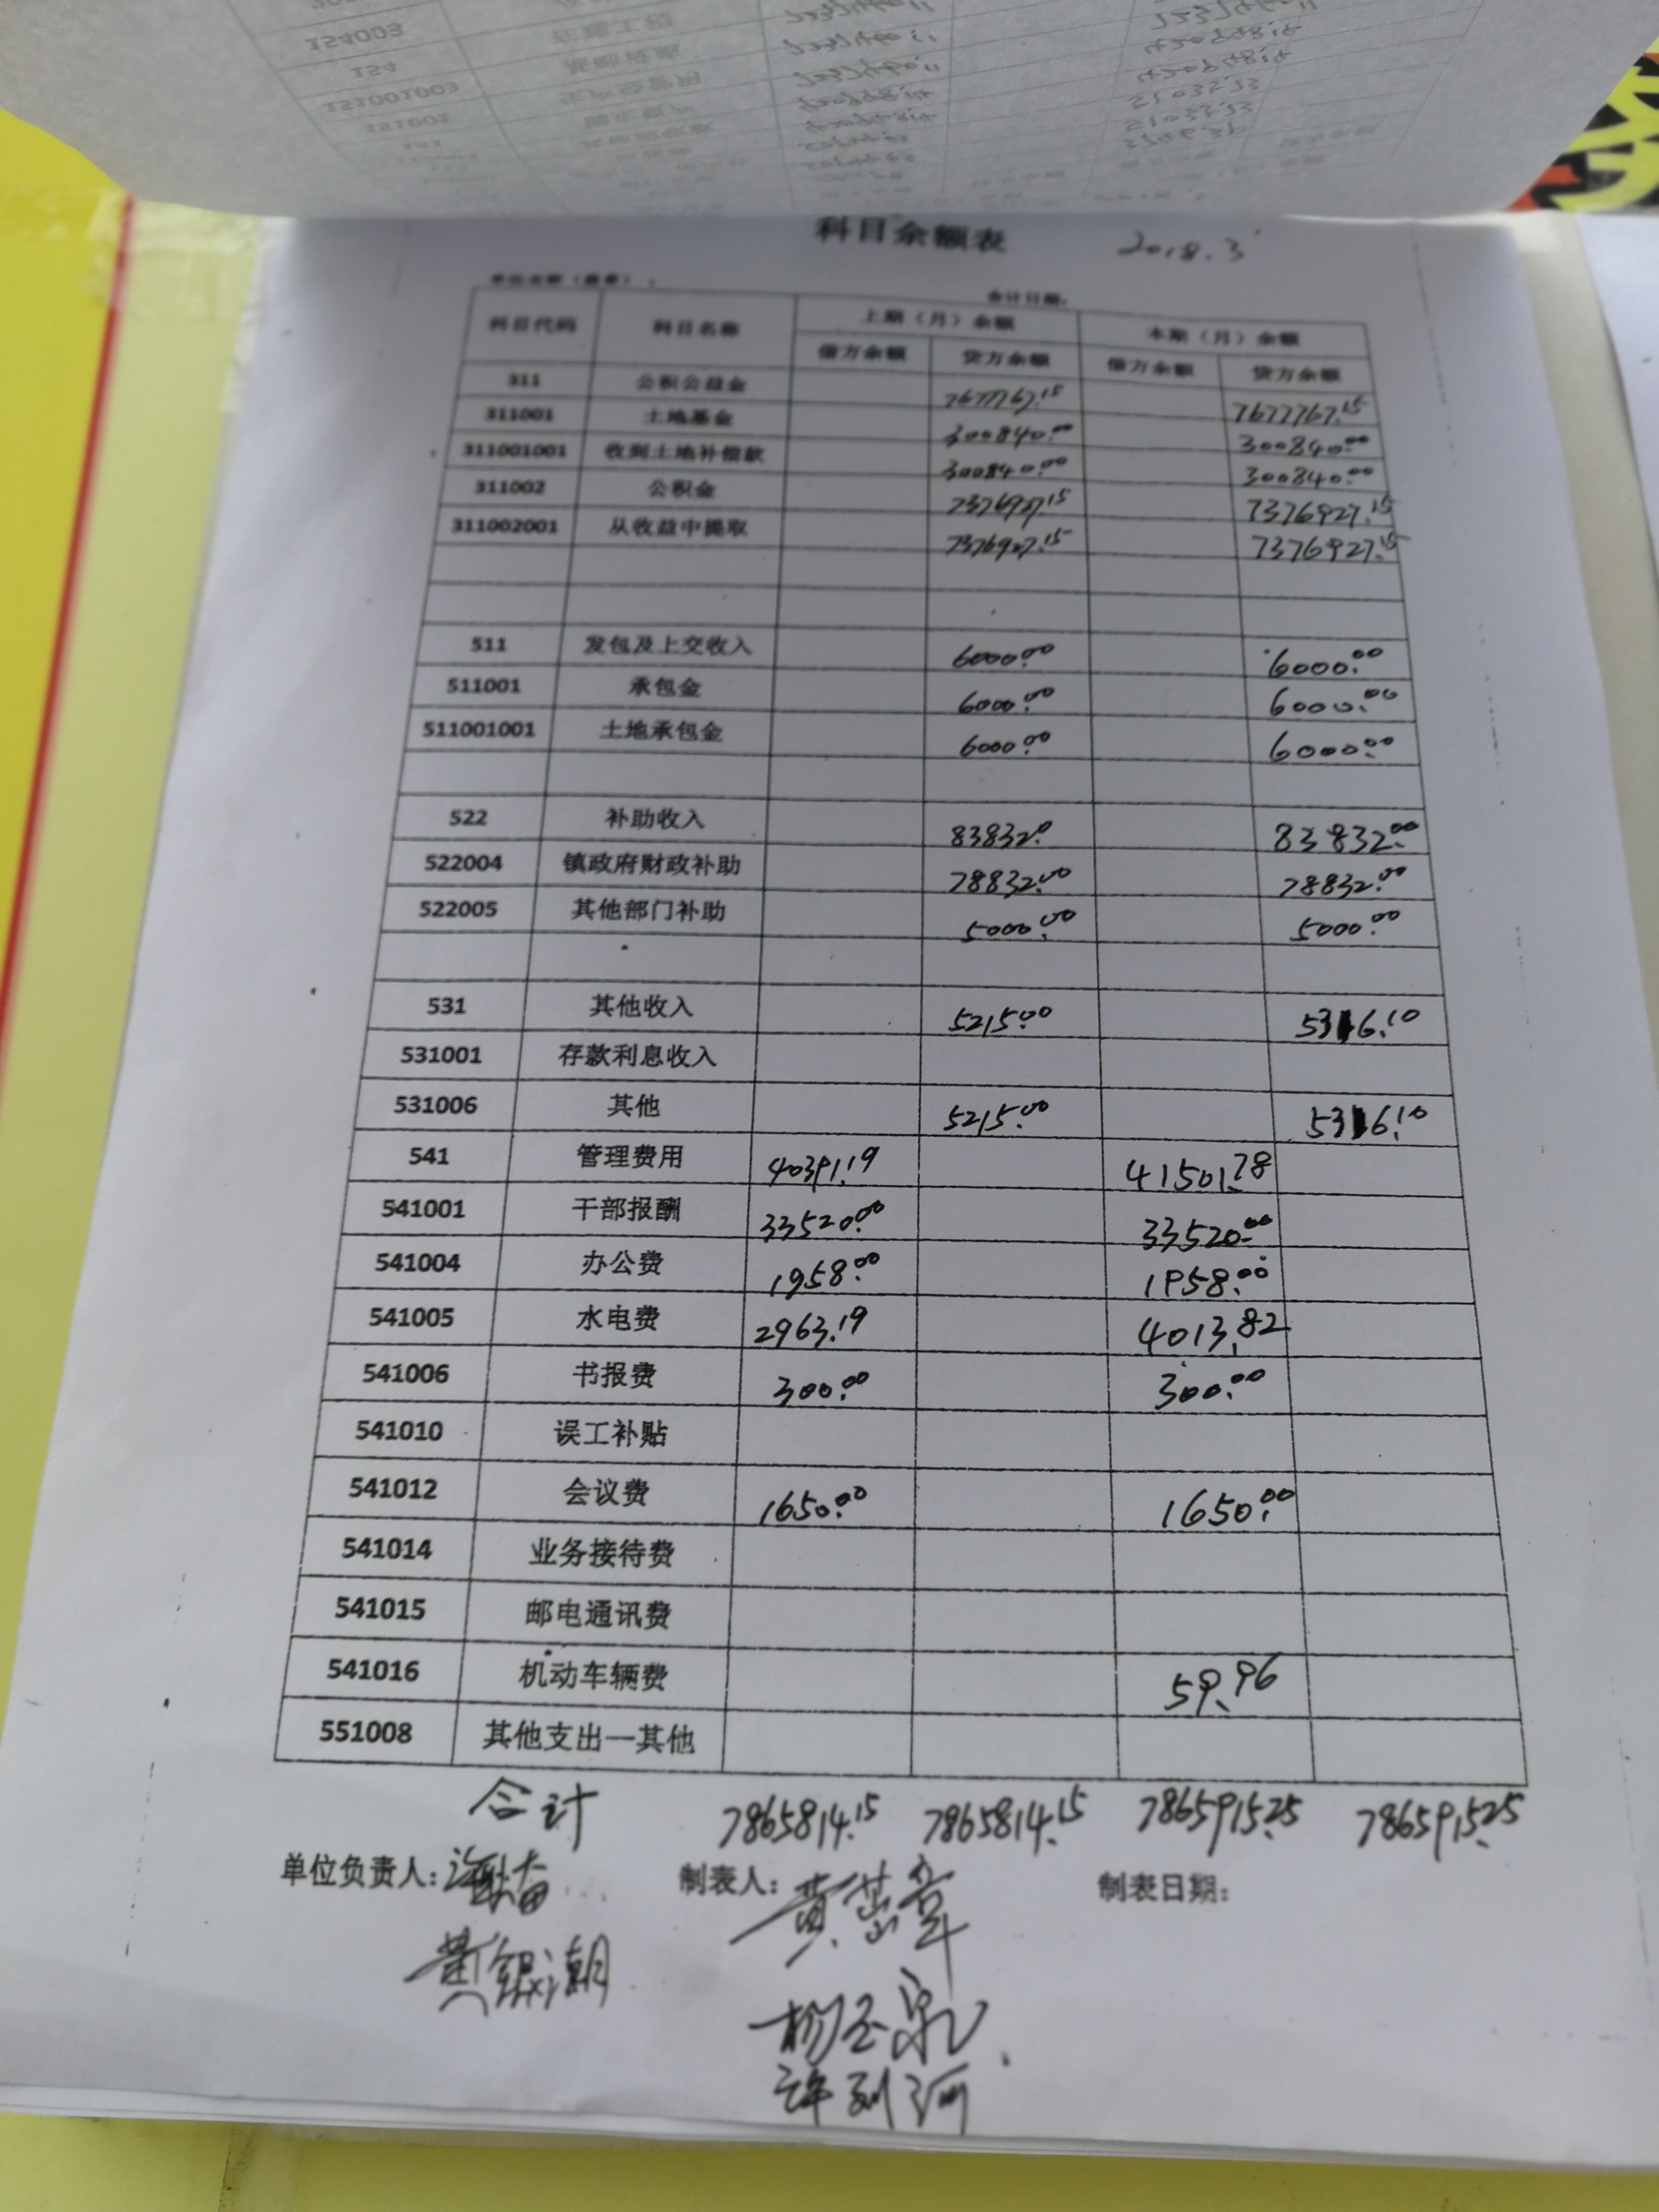 科目余额表 2018.3
单位名称（盖章）： 会计日期：
科目代码 科目名称 上期（月）余额 本期（月）余额
借方余额 贷方余额 借方余额 贷方余额
311 公积公益金 7677767.15 7677767.15
311001 土地基金 300840.00 300840.00
311001001 收到土地补偿款 300840.00 300840.00
311002 公积金 7376927.15 7376927.15
311002001 从收益中提取 7376927.15 7376927.15
511 发包及上交收入 6000.00 6000.00
511001 承包金 6000.00 6000.00
511001001 土地承包金 6000.00 6000.00
522 补助收入 83832.0 83832.00
522004 镇政府财政补助 78832.00 78832.00
522005 其他部门补助 5000.00 5000.00
531 其他收入 5215.00 5316.10
531001 存款利息收入
531006 其他 5215.00 5316.10
541 管理费用 40391.19 41501.78
541001 干部报酬 33520.00 33520.00
541004 办公费 1958.00 1958.00
541005 水电费 2963.19 4013.82
541006 书报费 300.00 300.00
541010 误工补贴
541012 会议费 1650.00 1650.00
541014 业务接待费
541015 邮电通讯费
541016 机动车辆费 59.96
551008 其他支出—其他
合计 7865814.15 7865814.15 7865915.25 7865915.25
单位负责人： 制表人： 制表日期：
黄银潮
杨玉泉